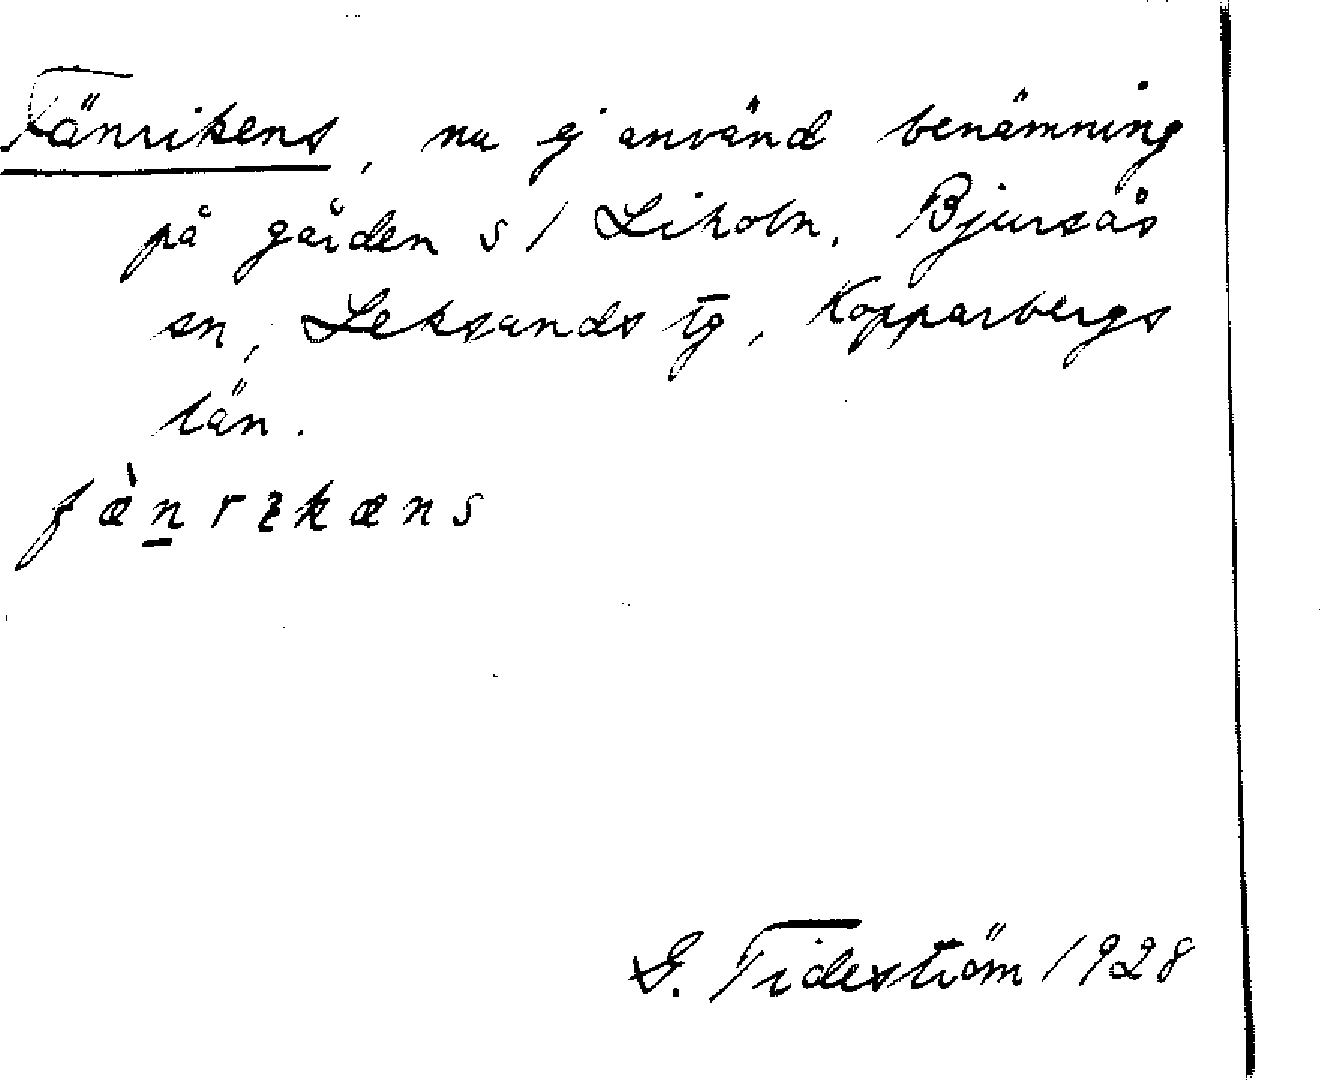 Fänrikens, nu ej använd benämning
på gården s/ Liholn, Bjursås
sn, Leksands tg, Kopparbergs
län.
fæ̀n̲rɩkæns
G. Tideström 1928